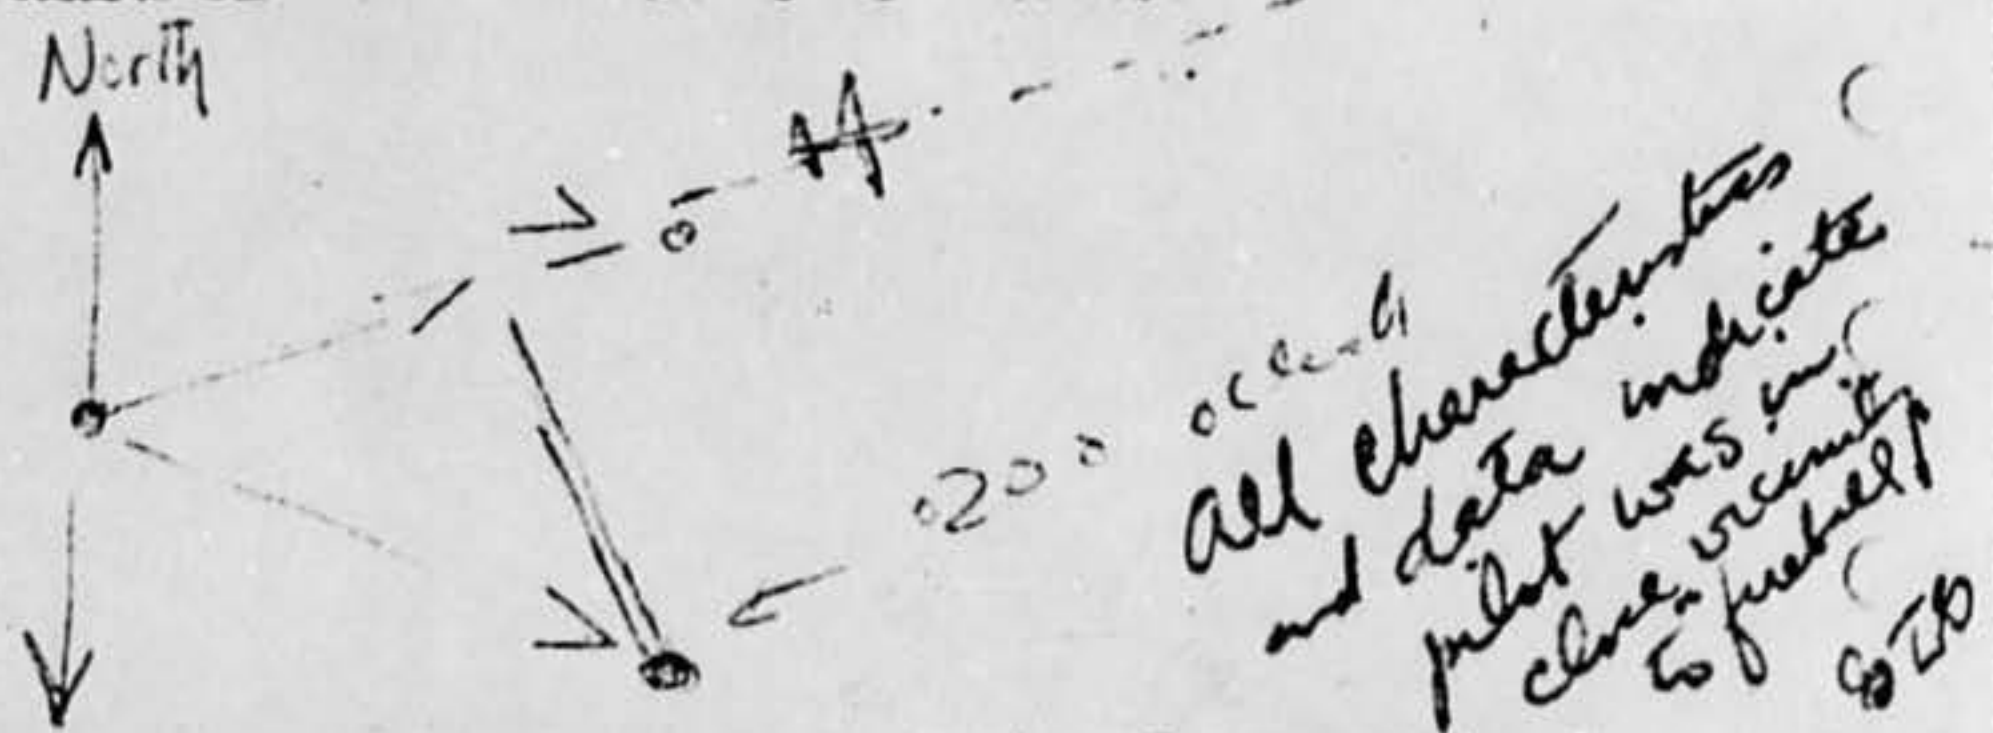 North
All characteristics
and data indicate
pilot was in
close vicinity
to fireball